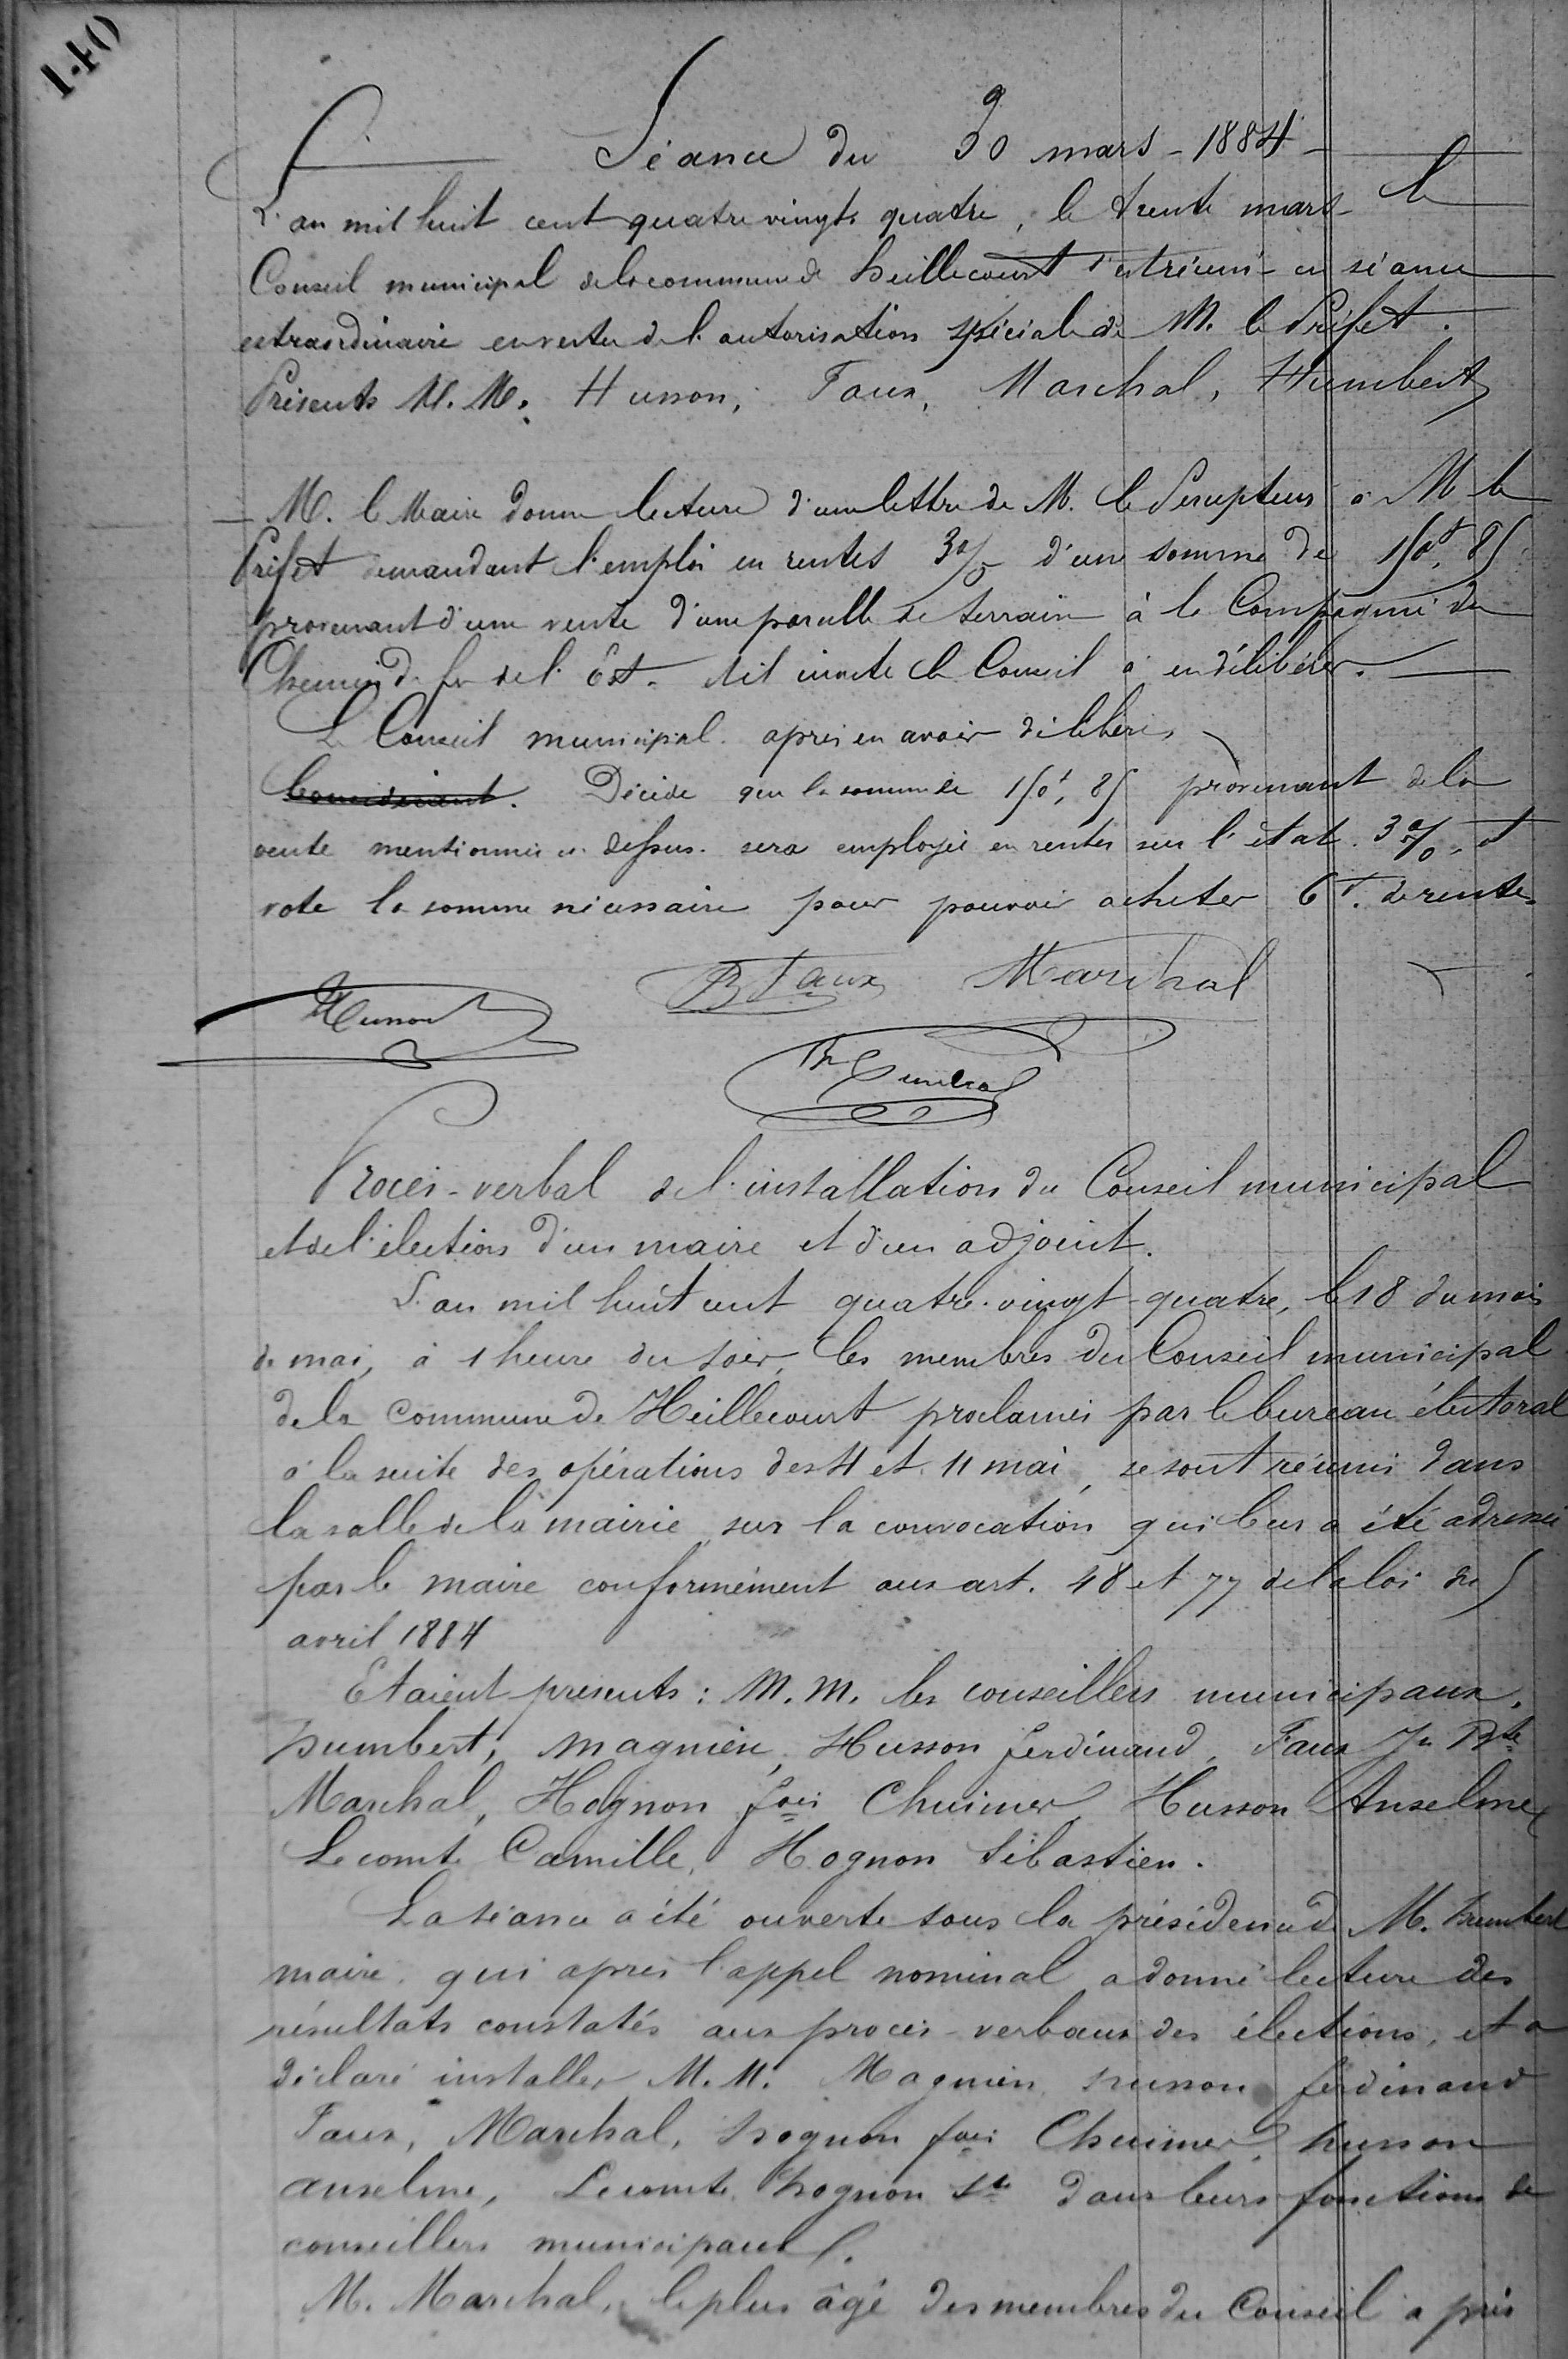 140
Séance du 30 mars - 1884
L'an mil huit cent quatre vingts quatre, le trente mars le
Conseil municipal de la commune de heillecourt s'est réuni en séance
extraordinaire en vertu de l'autorisation spéciale de M. le Préfet.
Présents M.M. Husson, Faux, Marchal, Humbert
M. le Maire donne lecture d'une lettre de M. le Percepteur à M le
Préfet demandant l'emploi en rentes 3% d'une somme de 150f,85
provenant d'une vente d'une parcelle de terrain à la Compagnie du
Chemin de fer de l'Est. Et il invite le Conseil à en délibérer.
Le Conseil municipal après en avoir délibéré,
Considérant. Décide que la somme de 150f,85 provenant de la
vente mentionnée ci-dessus sera employée en rentes sur l'état 3%, et
vote la somme nécessaire pour pouvoir acheter 6f. de rentes
Husson
B Faux Marchal
Procès-verbal de l'installation du Conseil municipal
et de l'élection d'un maire et d'un adjoint.
L'an mil huit cent quatre-vingt-quatre, le 18 du mois
de mai, à 1 heure du soir, les membres du Conseil municipal
de la commune de Heillecourt proclamés par le bureau électoral
à la suite des opérations des 4 et 11 mai, se sont réunis dans
la salle de la mairie, sur la convocation qui leur a été adressée
par le maire conformément aux art. 48 et 77 de la loi du 5
avril 1884
Etaient présents : M.M. les conseillers municipaux,
humbert, Magnien, Husson ferdinand, Faux Jn Bte
Marchal, Hognon fois Chuimer, Husson Anselme,
Lecomte Camille, Hognon Sébastien.
La séance a été ouverte sous la présidence de M. humbert
maire, qui après l'appel nominal a donné lecture des
résultats constatés aux procès-verbaux des élections, et a
déclaré installer M.M. Magnien, husson ferdinand
Faux, Marchal, hognon fois Chuimer, husson
anselme, Lecomte, hognon Stn dans leurs fonctions de
conseillers municipaux.
M. Marchal, le plus âgé des membres du Conseil a pris